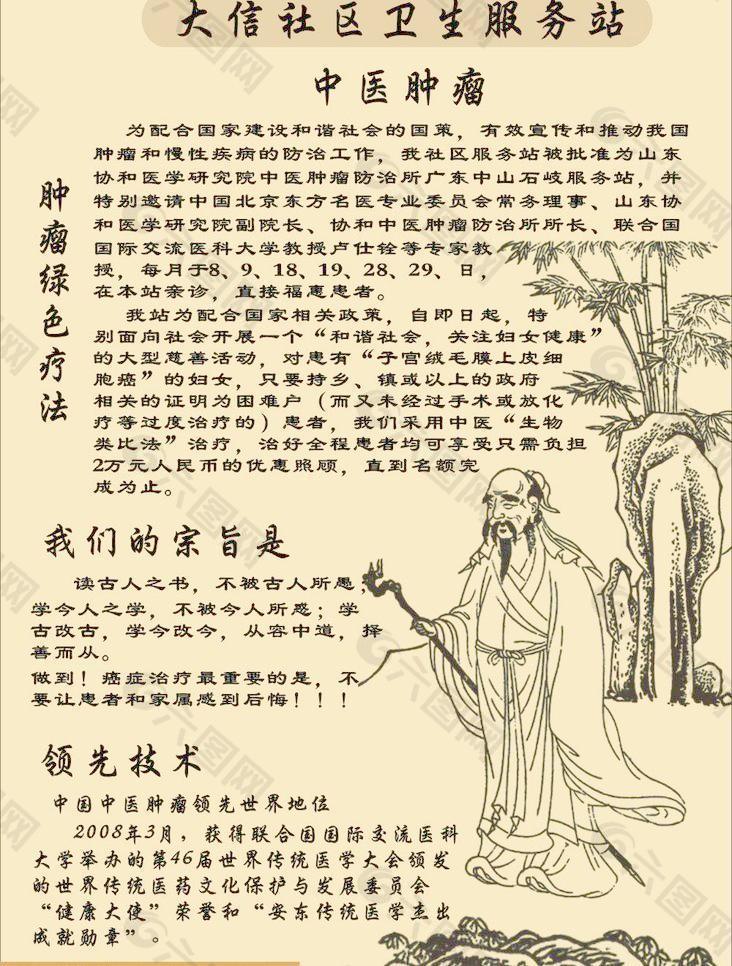 大信社区卫生服务站
中医肿瘤
肿瘤绿色疗法
为配合国家建设和谐社会的国策，有效宣传和推动我国
肿瘤和慢性疾病的防治工作，我社区服务站被批准为山东
协和医学研究院中医肿瘤防治所广东中山石岐服务站，并
特别邀请中国北京东方名医专业委员会常务理事、山东协
和医学研究院副院长、协和中医肿瘤防治所所长、联合国
国际交流医科大学教授卢仕铨等专家教
授，每月于8、9、18、19、28、29、日，
在本站亲诊，直接福惠患者。
我站为配合国家相关政策，自即日起，特
别面向社会开展一个“和谐社会，关注妇女健康”
的大型慈善活动，对患有“子宫绒毛膜上皮细
胞癌”的妇女，只要持乡、镇或以上的政府
相关的证明为困难户（而又未经过手术或放化
疗等过度治疗的）患者，我们采用中医“生物
类比法”治疗，治好全程患者均可享受只需负担
2万元人民币的优惠照顾，直到名额完
成为止。
我们的宗旨是
读古人之书，不被古人所愚，
学今人之学，不被今人所惑；学
古改古，学今改今，从容中道，择
善而从。
做到！癌症治疗最重要的是，不
要让患者和家属感到后悔！！！
领先技术
中国中医肿瘤领先世界地位
2008年3月，获得联合国国际交流医科
大学举办的第46届世界传统医学大会颁发
的世界传统医药文化保护与发展委员会
“健康大使”荣誉和“安东传统医学杰出
成就勋章”。
六图网